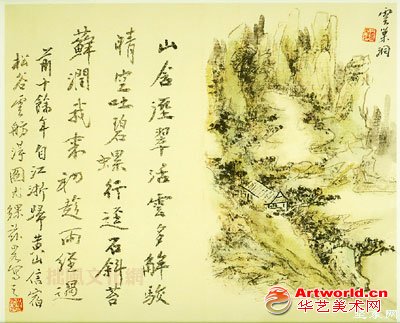 雲巢洞
山含溼翠活雲多解駁
晴空吐碧螺行逕石斜苔
蘚潤我來初趁雨經過
前十餘年自江浙歸黃山信宿
松谷雲舫得圖寫之
Artworld.cn
华艺美术网